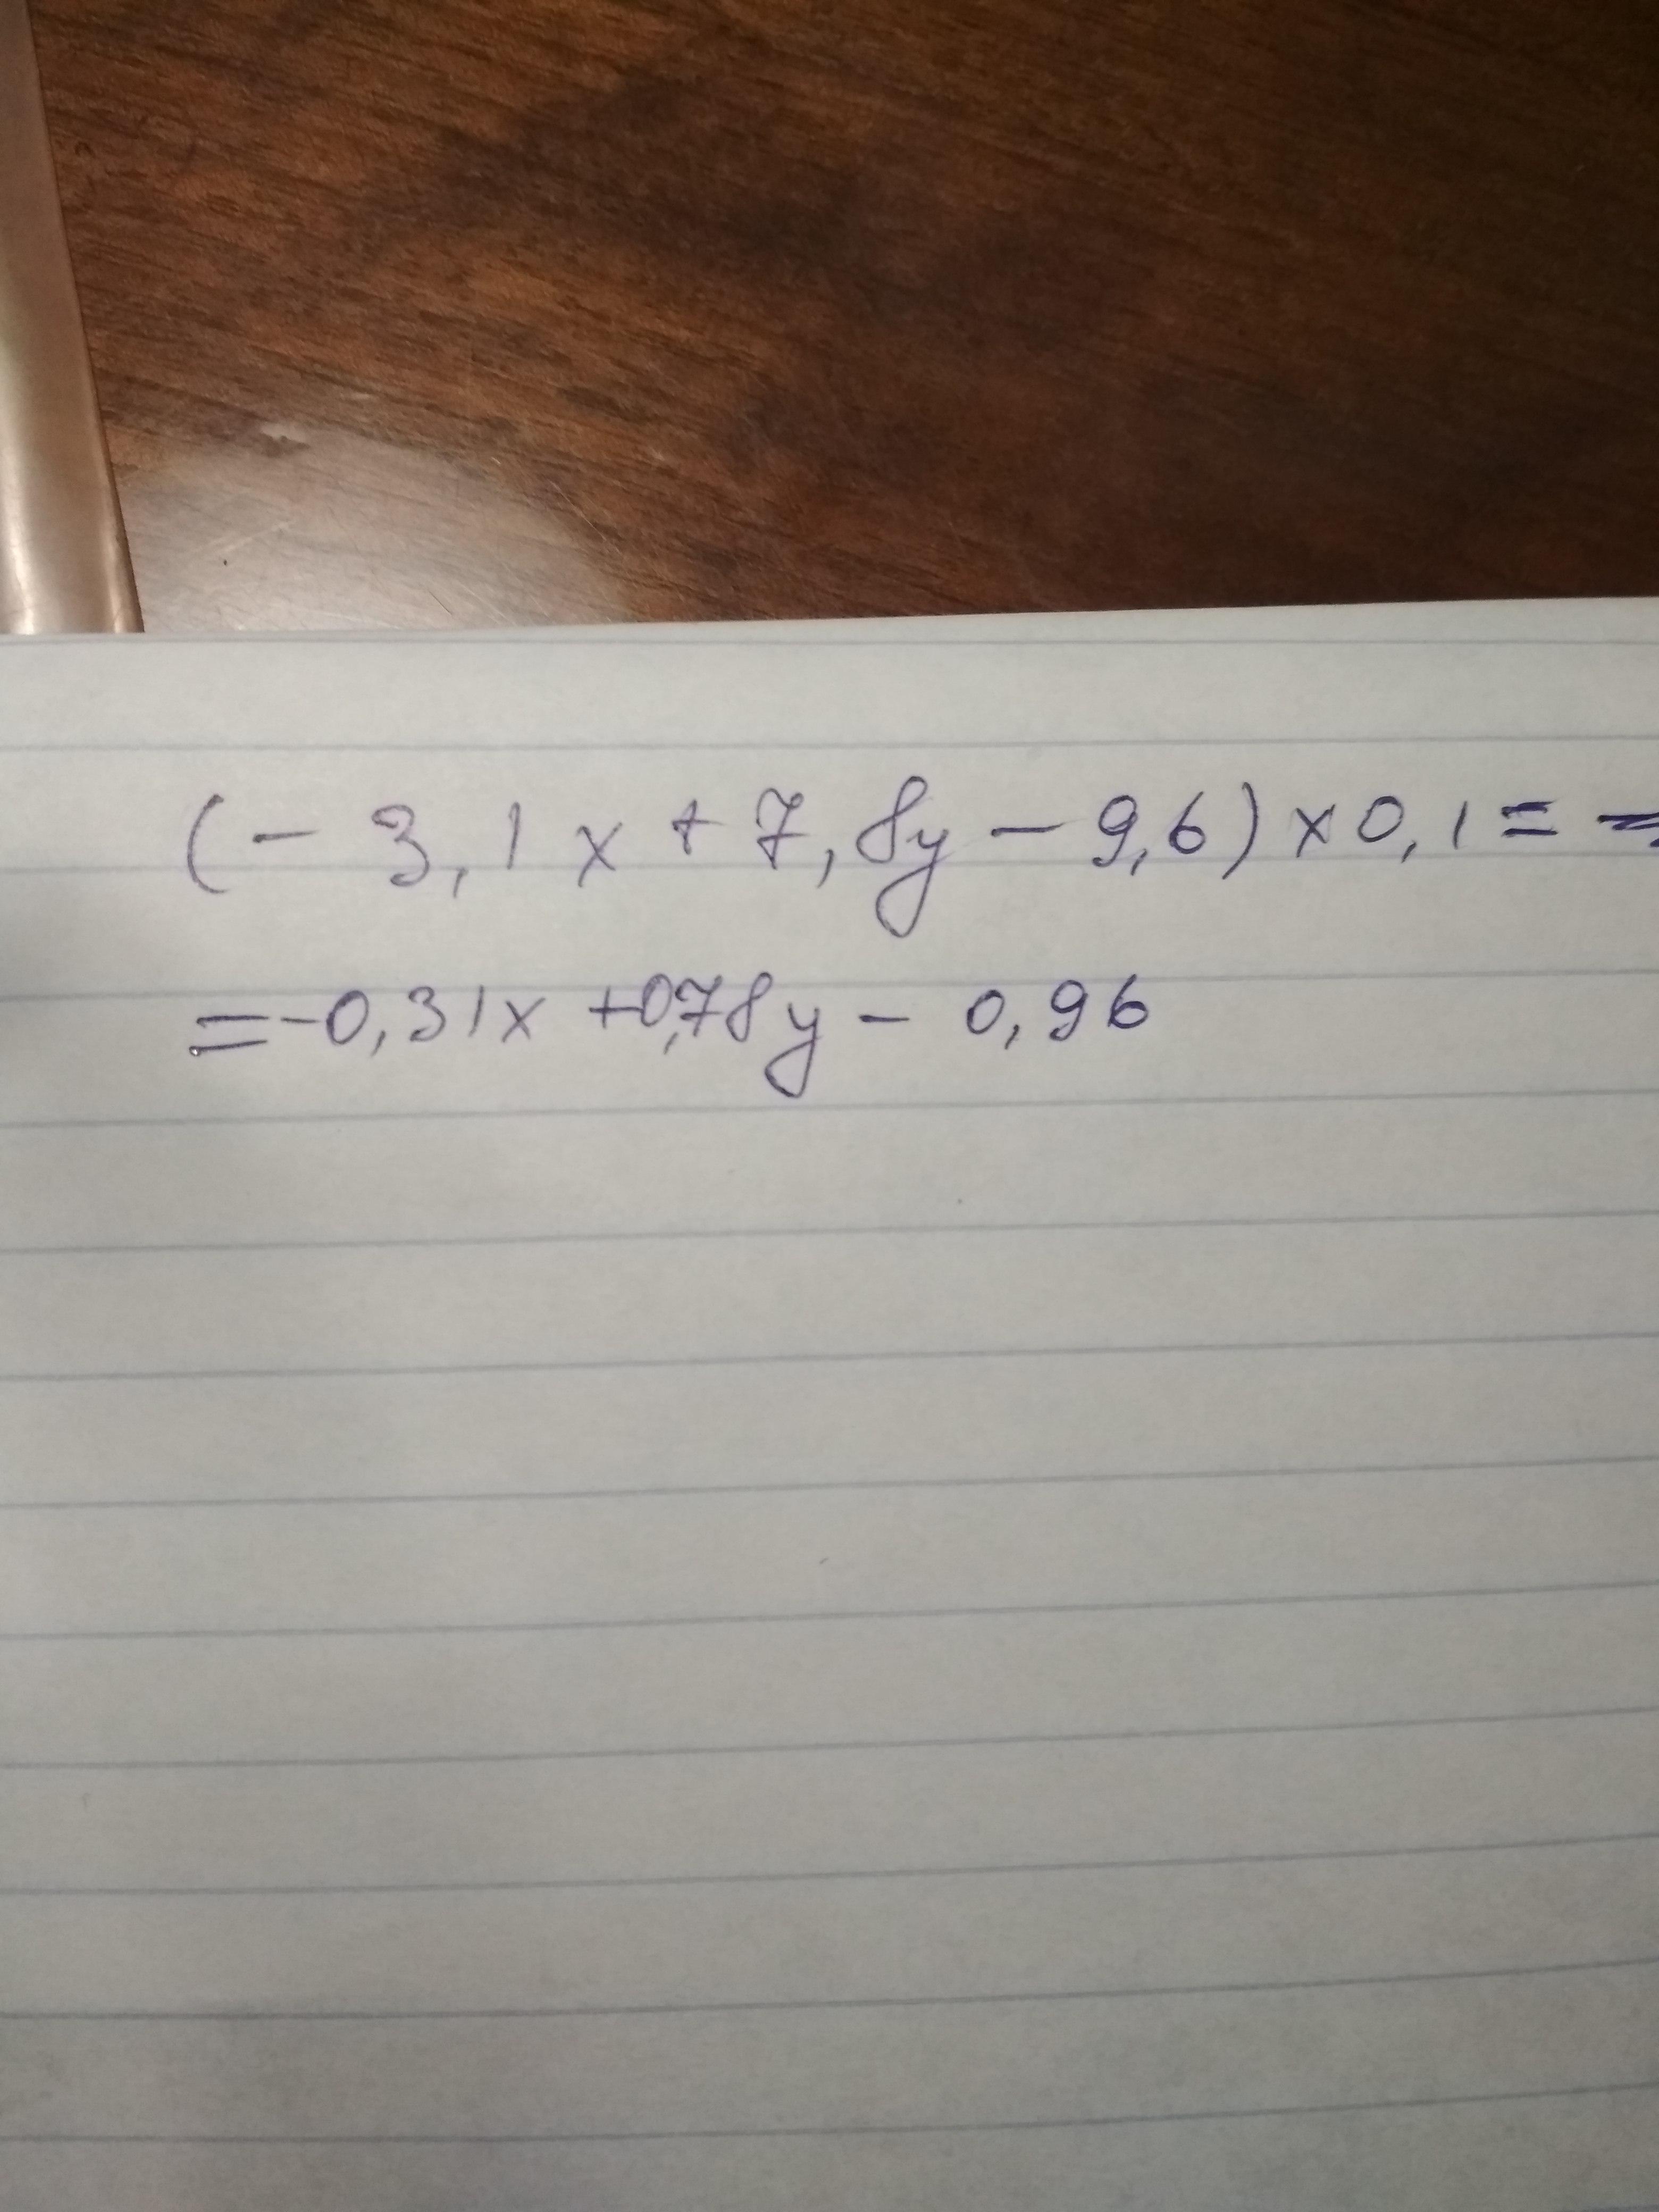 (- 3,1x + 7,8y - 9,6) × 0,1 =
= -0,31x + 0,78y - 0,96